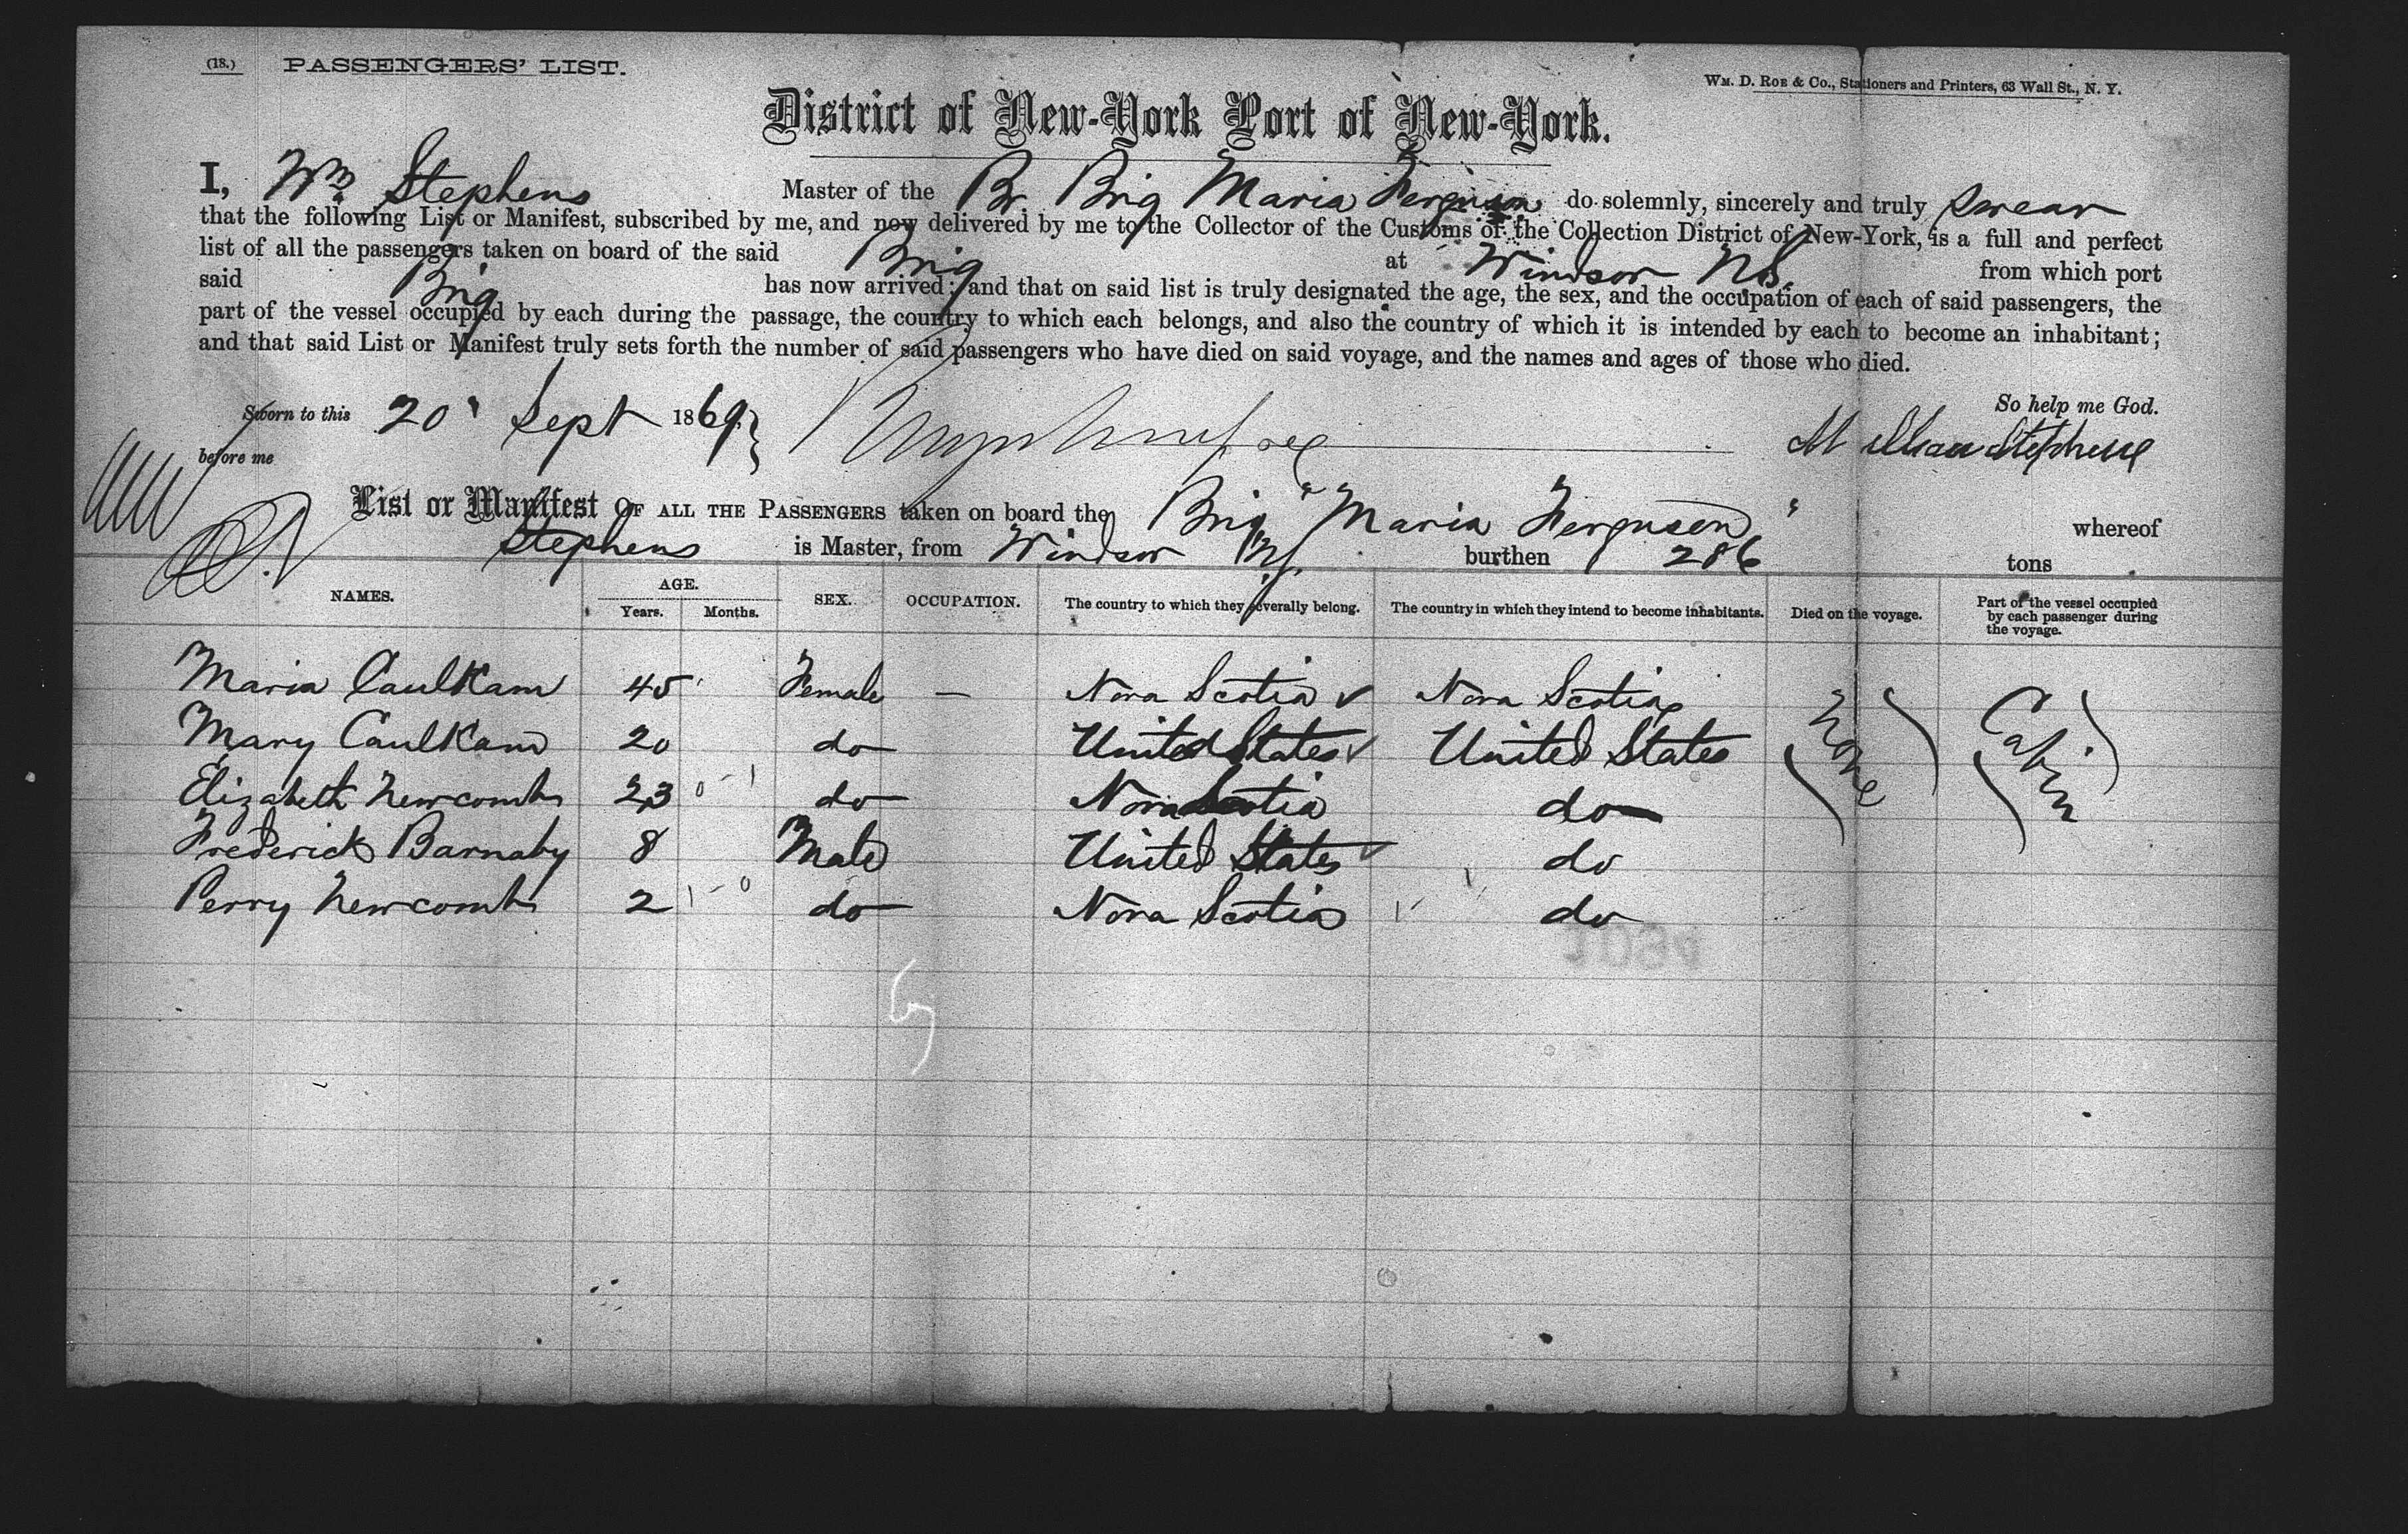 (18.) PASSENGERS' LIST.
WM. D. ROE & Co., Stationers and Printers, 63 Wall St., N. Y.
District of New-York Port of New-York.
I, Wm Stephens Master of the Br Brig Maria Ferguson do solemnly, sincerely and truly swear
that the following List or Manifest, subscribed by me, and now delivered by me to the Collector of the Customs of the Collection District of New-York, is a full and perfect
list of all the passengers taken on board of the said Brig at Windsor NS. from which port
said Brig has now arrived; and that on said list is truly designated the age, the sex, and the occupation of each of said passengers, the
part of the vessel occupied by each during the passage, the country to which each belongs, and also the country of which it is intended by each to become an inhabitant;
and that said List or Manifest truly sets forth the number of said passengers who have died on said voyage, and the names and ages of those who died.
So help me God.
Sworn to this 20 Sept 1869
before me
William Stephens
List or Manifest OF ALL THE PASSENGERS taken on board the Brig "Maria Ferguson" whereof
Stephens is Master, from Windsor NS. burthen 286 tons
NAMES. AGE. Years. Months. SEX. OCCUPATION. The country to which they severally belong. The country in which they intend to become inhabitants. Died on the voyage. Part of the vessel occupied by each passenger during the voyage.
Maria Caulkam 45 Female — Nova Scotia Nova Scotia None Cabin
Mary Caulkam 20 do United States United States
Elizabeth Newcomb 23 do Nova Scotia do
Frederick Barnaby 8 Male United States do
Perry Newcomb 2 do Nova Scotia do